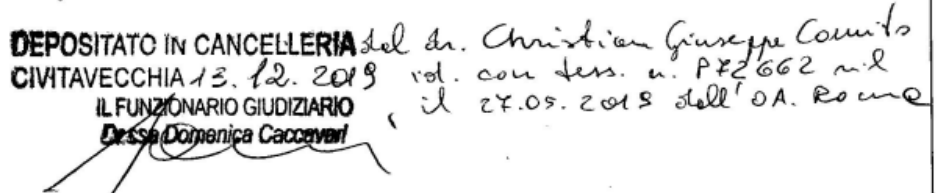 DEPOSITATO IN CANCELLERIA del dr. Christian Giuseppe Comito
CIVITAVECCHIA 13.12.2019 id. con tess. n. P72662 ril
IL FUNZIONARIO GIUDIZIARIO il 27.05.2019 dall'OA. Roma
Dr.ssa Domenica Caccavari